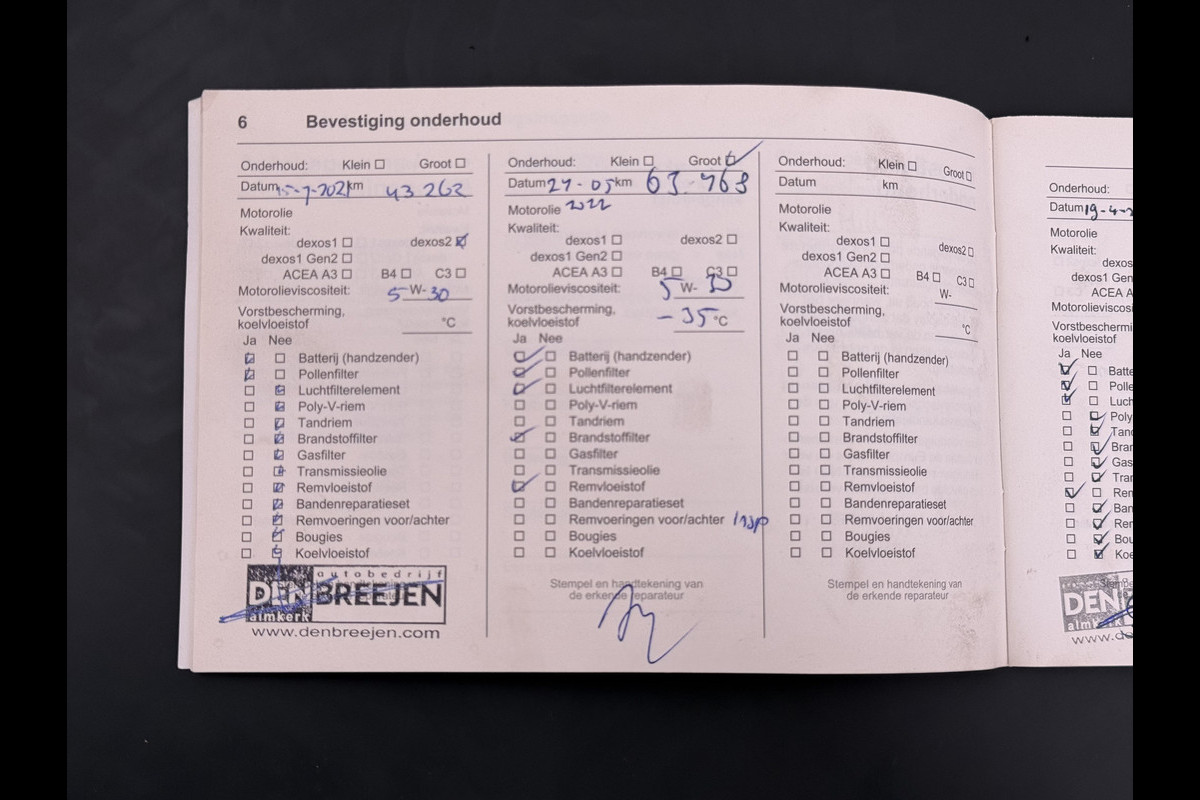 6 Bevestiging onderhoud
Onderhoud: Klein ☐ Groot ☐
Datum km 43 262
Motorolie
Kwaliteit:
dexos1 ☐ dexos2 ☑
dexos1 Gen2 ☐
ACEA A3 ☐ B4 ☐ C3 ☐
Motorolieviscositeit: 5 W- 30
Vorstbescherming,
koelvloeistof °C
Ja Nee
☑ ☐ Batterij (handzender)
☑ ☐ Pollenfilter
☐ ☑ Luchtfilterelement
☐ ☑ Poly-V-riem
☐ ☑ Tandriem
☐ ☑ Brandstoffilter
☐ ☑ Gasfilter
☐ ☑ Transmissieolie
☐ ☑ Remvloeistof
☐ ☑ Bandenreparatieset
☐ ☑ Remvoeringen voor/achter
☐ ☑ Bougies
☐ ☑ Koelvloeistof
autobedrijf
DEN BREEJEN
almkerk
www.denbreejen.com
Onderhoud: Klein ☐ Groot ☑
Datum 27-05 km 63.768
Motorolie 2022
Kwaliteit:
dexos1 ☐ dexos2 ☐
dexos1 Gen2 ☐
ACEA A3 ☐ B4 ☐ C3 ☐
Motorolieviscositeit: 5 W-
Vorstbescherming,
koelvloeistof -35 °C
Ja Nee
☑ ☐ Batterij (handzender)
☑ ☐ Pollenfilter
☑ ☐ Luchtfilterelement
☐ ☐ Poly-V-riem
☐ ☐ Tandriem
☑ ☐ Brandstoffilter
☐ ☐ Gasfilter
☐ ☐ Transmissieolie
☑ ☐ Remvloeistof
☐ ☐ Bandenreparatieset
☐ ☐ Remvoeringen voor/achter insp
☐ ☐ Bougies
☐ ☐ Koelvloeistof
Stempel en handtekening van
de erkende reparateur
Onderhoud: Klein ☐ Groot ☐
Datum km
Motorolie
Kwaliteit:
dexos1 ☐ dexos2 ☐
dexos1 Gen2 ☐
ACEA A3 ☐ B4 ☐ C3 ☐
Motorolieviscositeit: W-
Vorstbescherming,
koelvloeistof °C
Ja Nee
☐ ☐ Batterij (handzender)
☐ ☐ Pollenfilter
☐ ☐ Luchtfilterelement
☐ ☐ Poly-V-riem
☐ ☐ Tandriem
☐ ☐ Brandstoffilter
☐ ☐ Gasfilter
☐ ☐ Transmissieolie
☐ ☐ Remvloeistof
☐ ☐ Bandenreparatieset
☐ ☐ Remvoeringen voor/achter
☐ ☐ Bougies
☐ ☐ Koelvloeistof
Stempel en handtekening van
de erkende reparateur
Onderhoud:
Datum 19-4-2
Motorolie
Kwaliteit:
dexos
dexos1 Gen
ACEA A
Motorolieviscosi
Vorstbescherming
koelvloeistof
Ja Nee
☑ ☐ Batte
☑ ☐ Polle
☑ ☐ Luch
☐ ☑ Poly
☐ ☑ Tand
☐ ☑ Bran
☐ ☑ Gas
☐ ☑ Tran
☑ ☐ Rem
☐ ☑ Ban
☐ ☑ Rem
☐ ☑ Bou
☐ ☑ Koe
DEN
almk
www.d